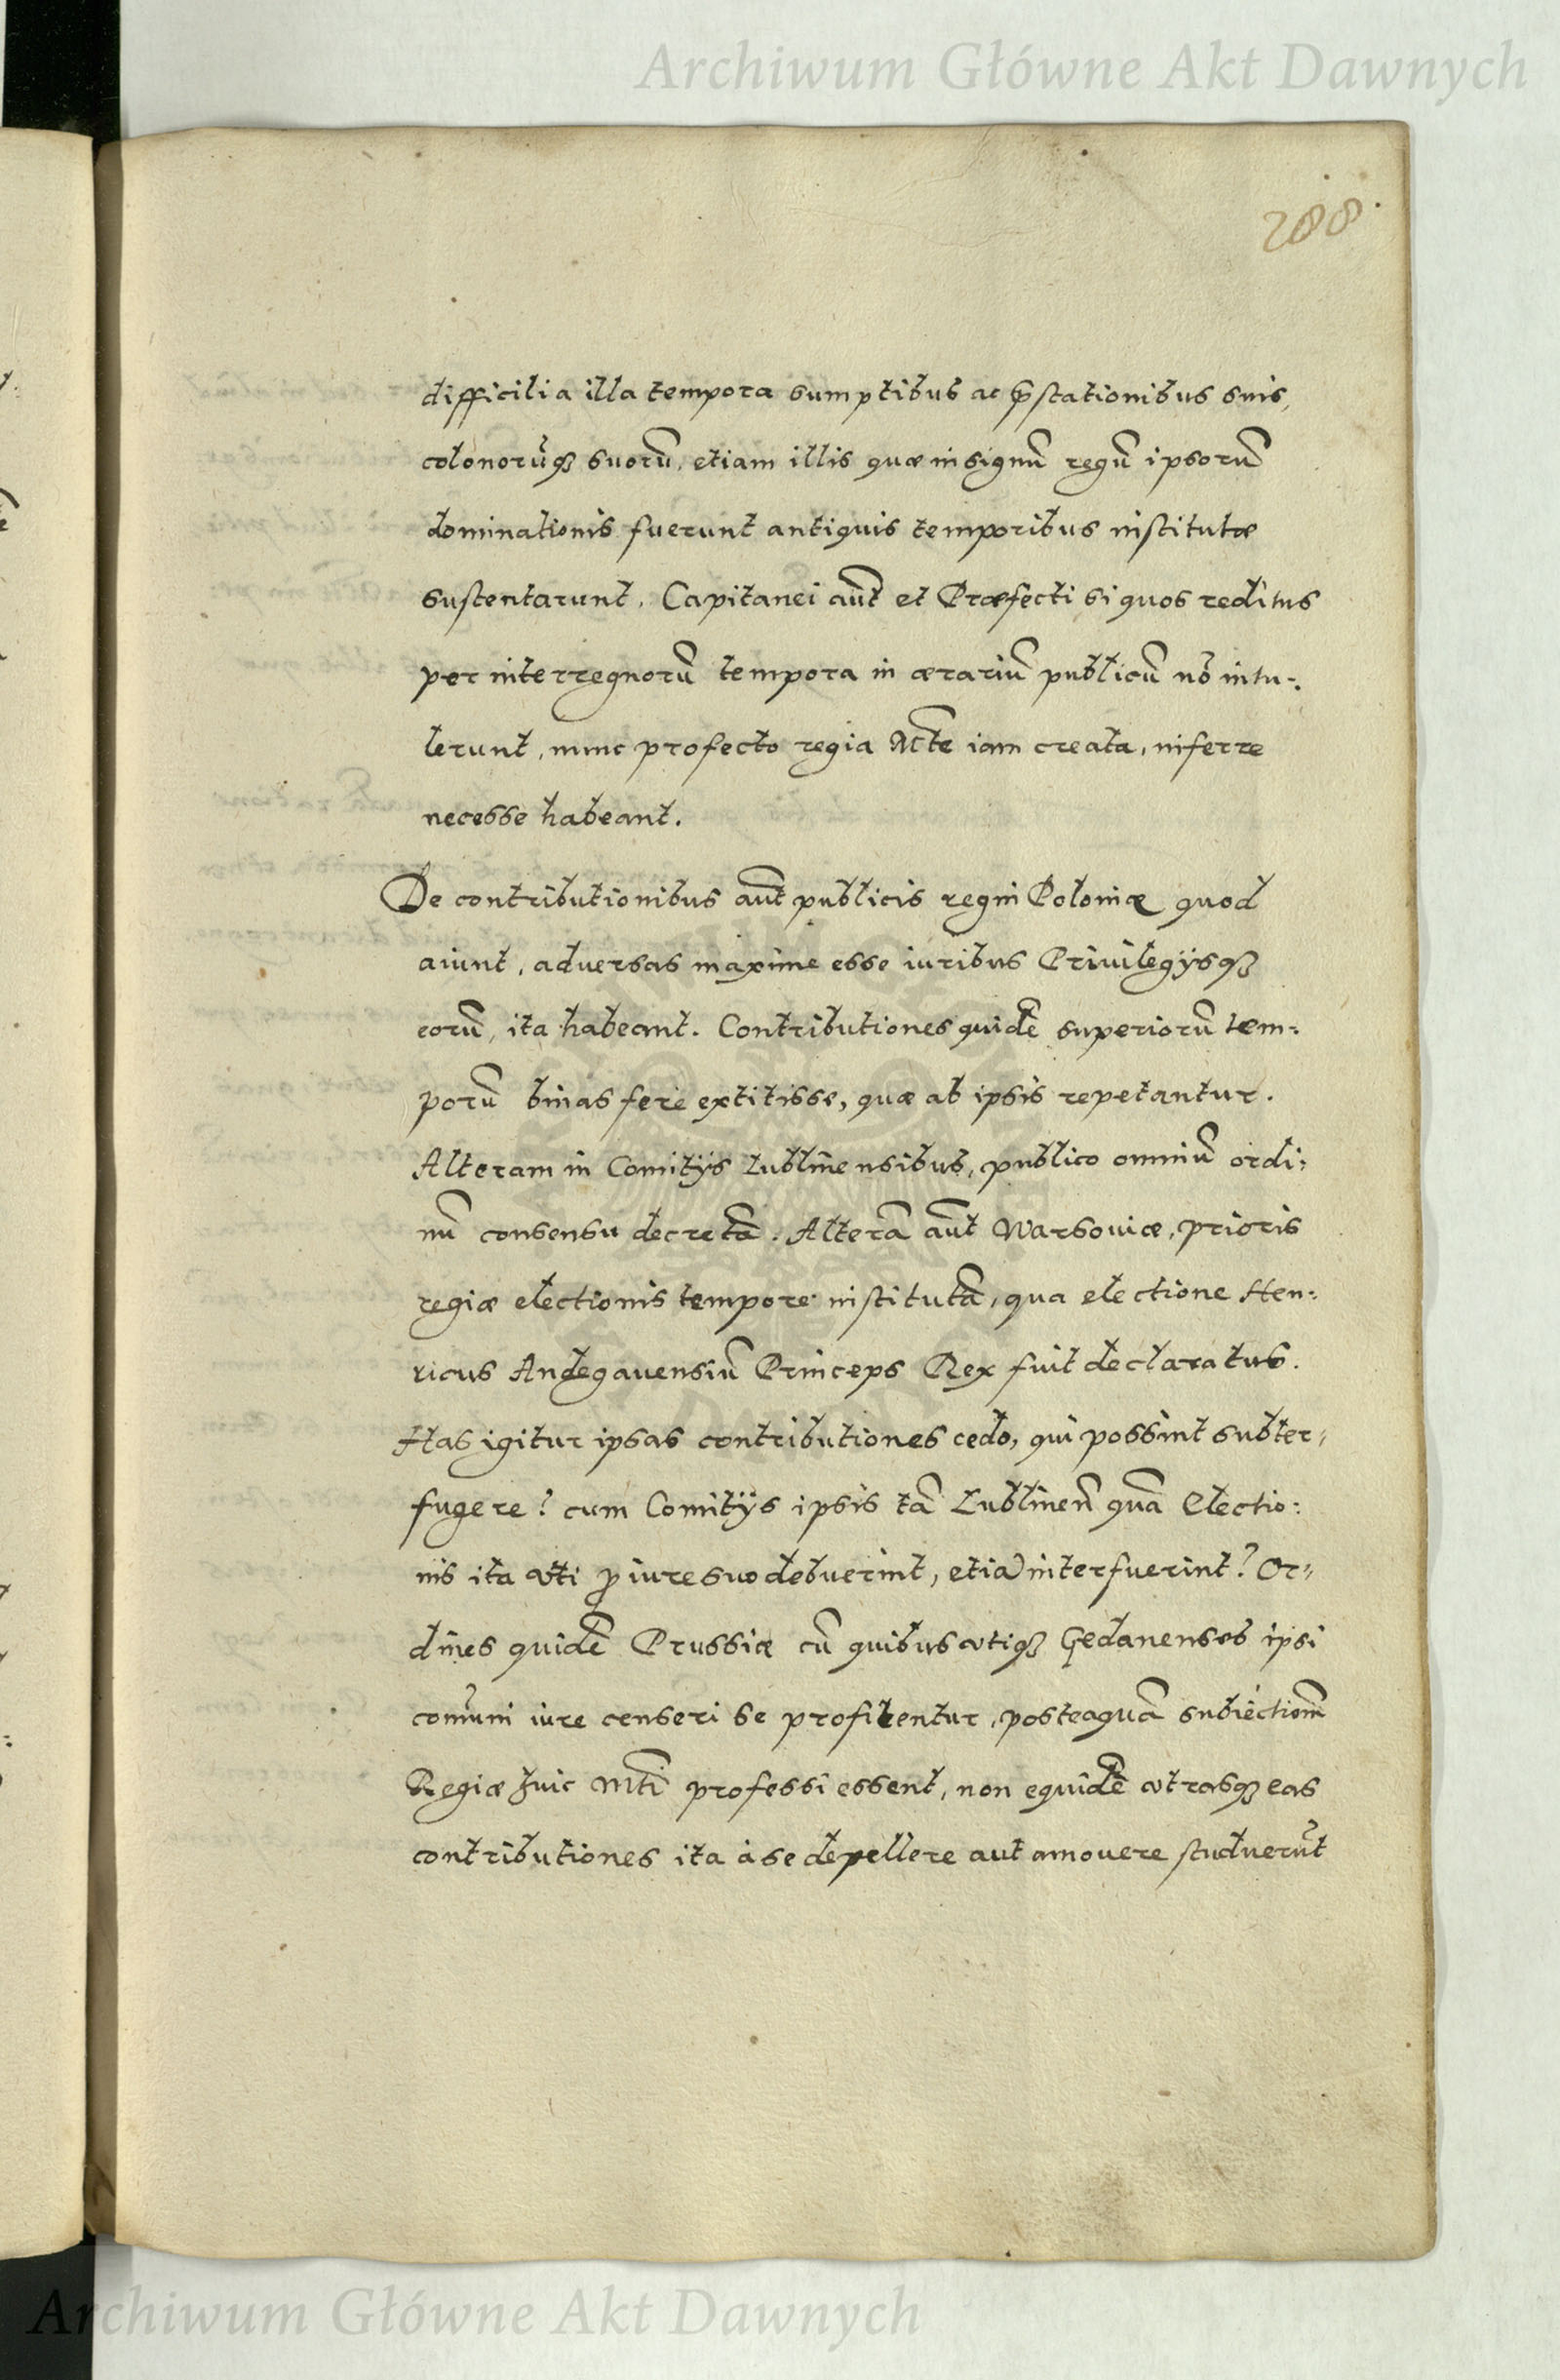 Archiwum Główne Akt Dawnych
288.
difficilia illa tempora sumptibus ac p̃stationibus suis,
colonorũqȝ suorũ, etiam illis quæ in signũ regũ ipsorũ
dominationis fuerunt antiquis temporibus institutæ
sustentarunt. Capitanei aũt et Præfecti si quos reditus
per interregnorũ tempora in ærariũ publicũ nõ intu-:
lerunt, nunc profecto regia Mte iam creata, inferre
necesse habeant.
De contributionibus aũt publicis regni Poloniæ quod
aiunt, adversas maxime esse iuribus Priuilegijsqȝ
eorũ, ita habeant. Contributiones quidẽ superiorũ tem-:
porũ binas fere extitisse, quæ ab ipsis repetantur.
Alteram in Comitijs Lublinensibus, publico omniũ ordi:
nũ consensu decretã. Alterã aũt Warsouiæ, prioris
regiæ electionis tempore institutã, qua electione Hen-:
ricus Andegauensiũ Princeps Rex fuit declaratus.
Has igitur ipsas contributiones cedo, qui possint subter-
fugere? cum Comitijs ipsis tã Lublineñ quã Electio:
nis ita vti p̱ iure suo debuerint, etiã interfuerint? Or-
dines quidẽ Prussiæ cũ quibus vtiqȝ Gedanenses ipsi
com̃uni iure censeri se profitentur, posteaquã subiectionẽ
Regiæ huic Mti professi essent, non equidẽ vtrasqȝ eas
contributiones ita à se depellere aut amouere studuerũt
Archiwum Główne Akt Dawnych